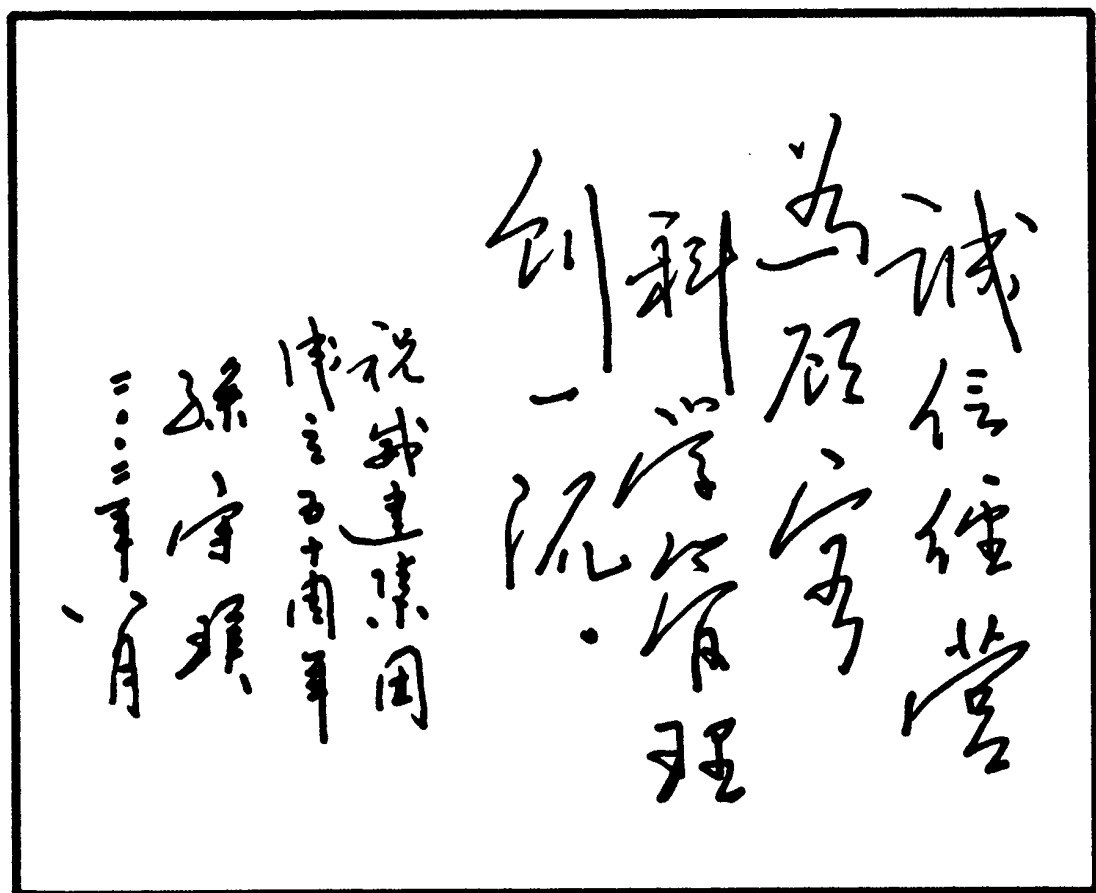 诚信经营
为顾客
科学管理
创一流.
祝威建集团
成立五十周年
孫守璞
二〇〇二年八月